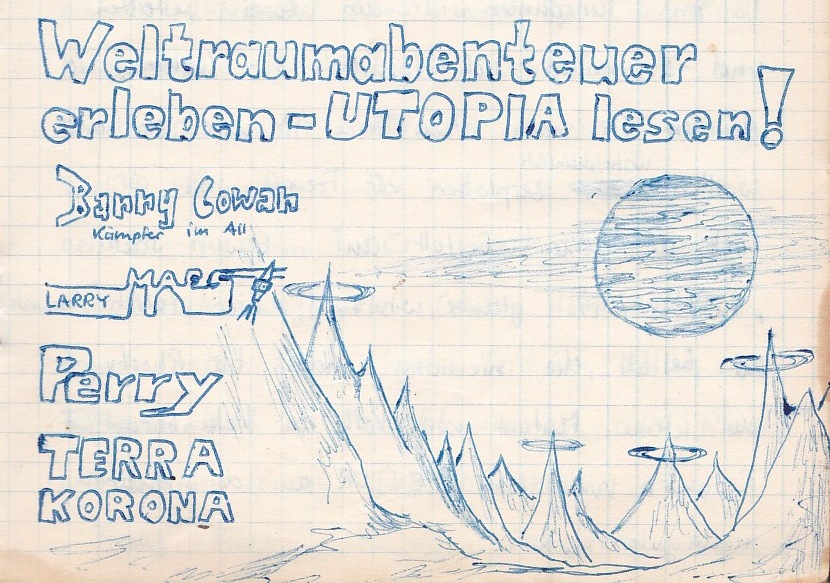 Weltraumabenteuer
erleben - UTOPIA lesen!
Barry Cowan
Kämpfer im All
LARRY MARS
Perry
TERRA
KORONA